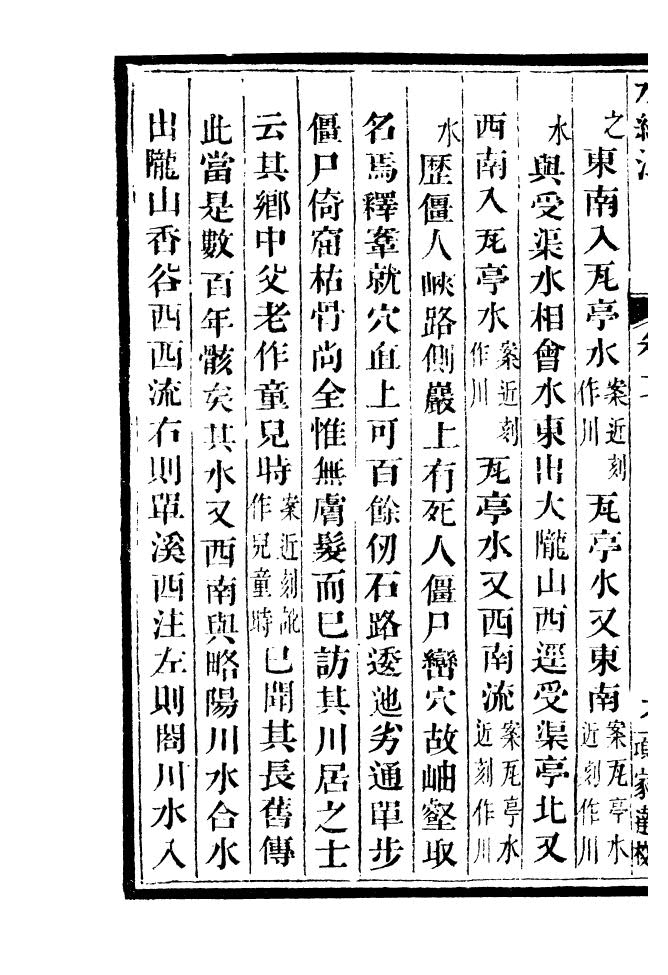 水經注 卷十七 項家達校
之東南入瓦亭水案近刻作川瓦亭水又東南案瓦亭水近刻作川
水與受渠水相會水東出大隴山西逕受渠亭北又
西南入瓦亭水案近刻作川瓦亭水又西南流案瓦亭水近刻作川
水歷僵人峽路側巖上有死人僵尸巒穴故岫壑取
名焉釋鞌就穴直上可百餘仞石路逶迤劣通單步
僵尸倚窟枯骨尚全惟無膚髮而已訪其川居之士
云其鄉中父老作童兒時案近刻訛作兒童時已聞其長舊傳
此當是數百年骸矣其水又西南與略陽川水合水
出隴山香谷西西流右則單溪西注左則閣川水入